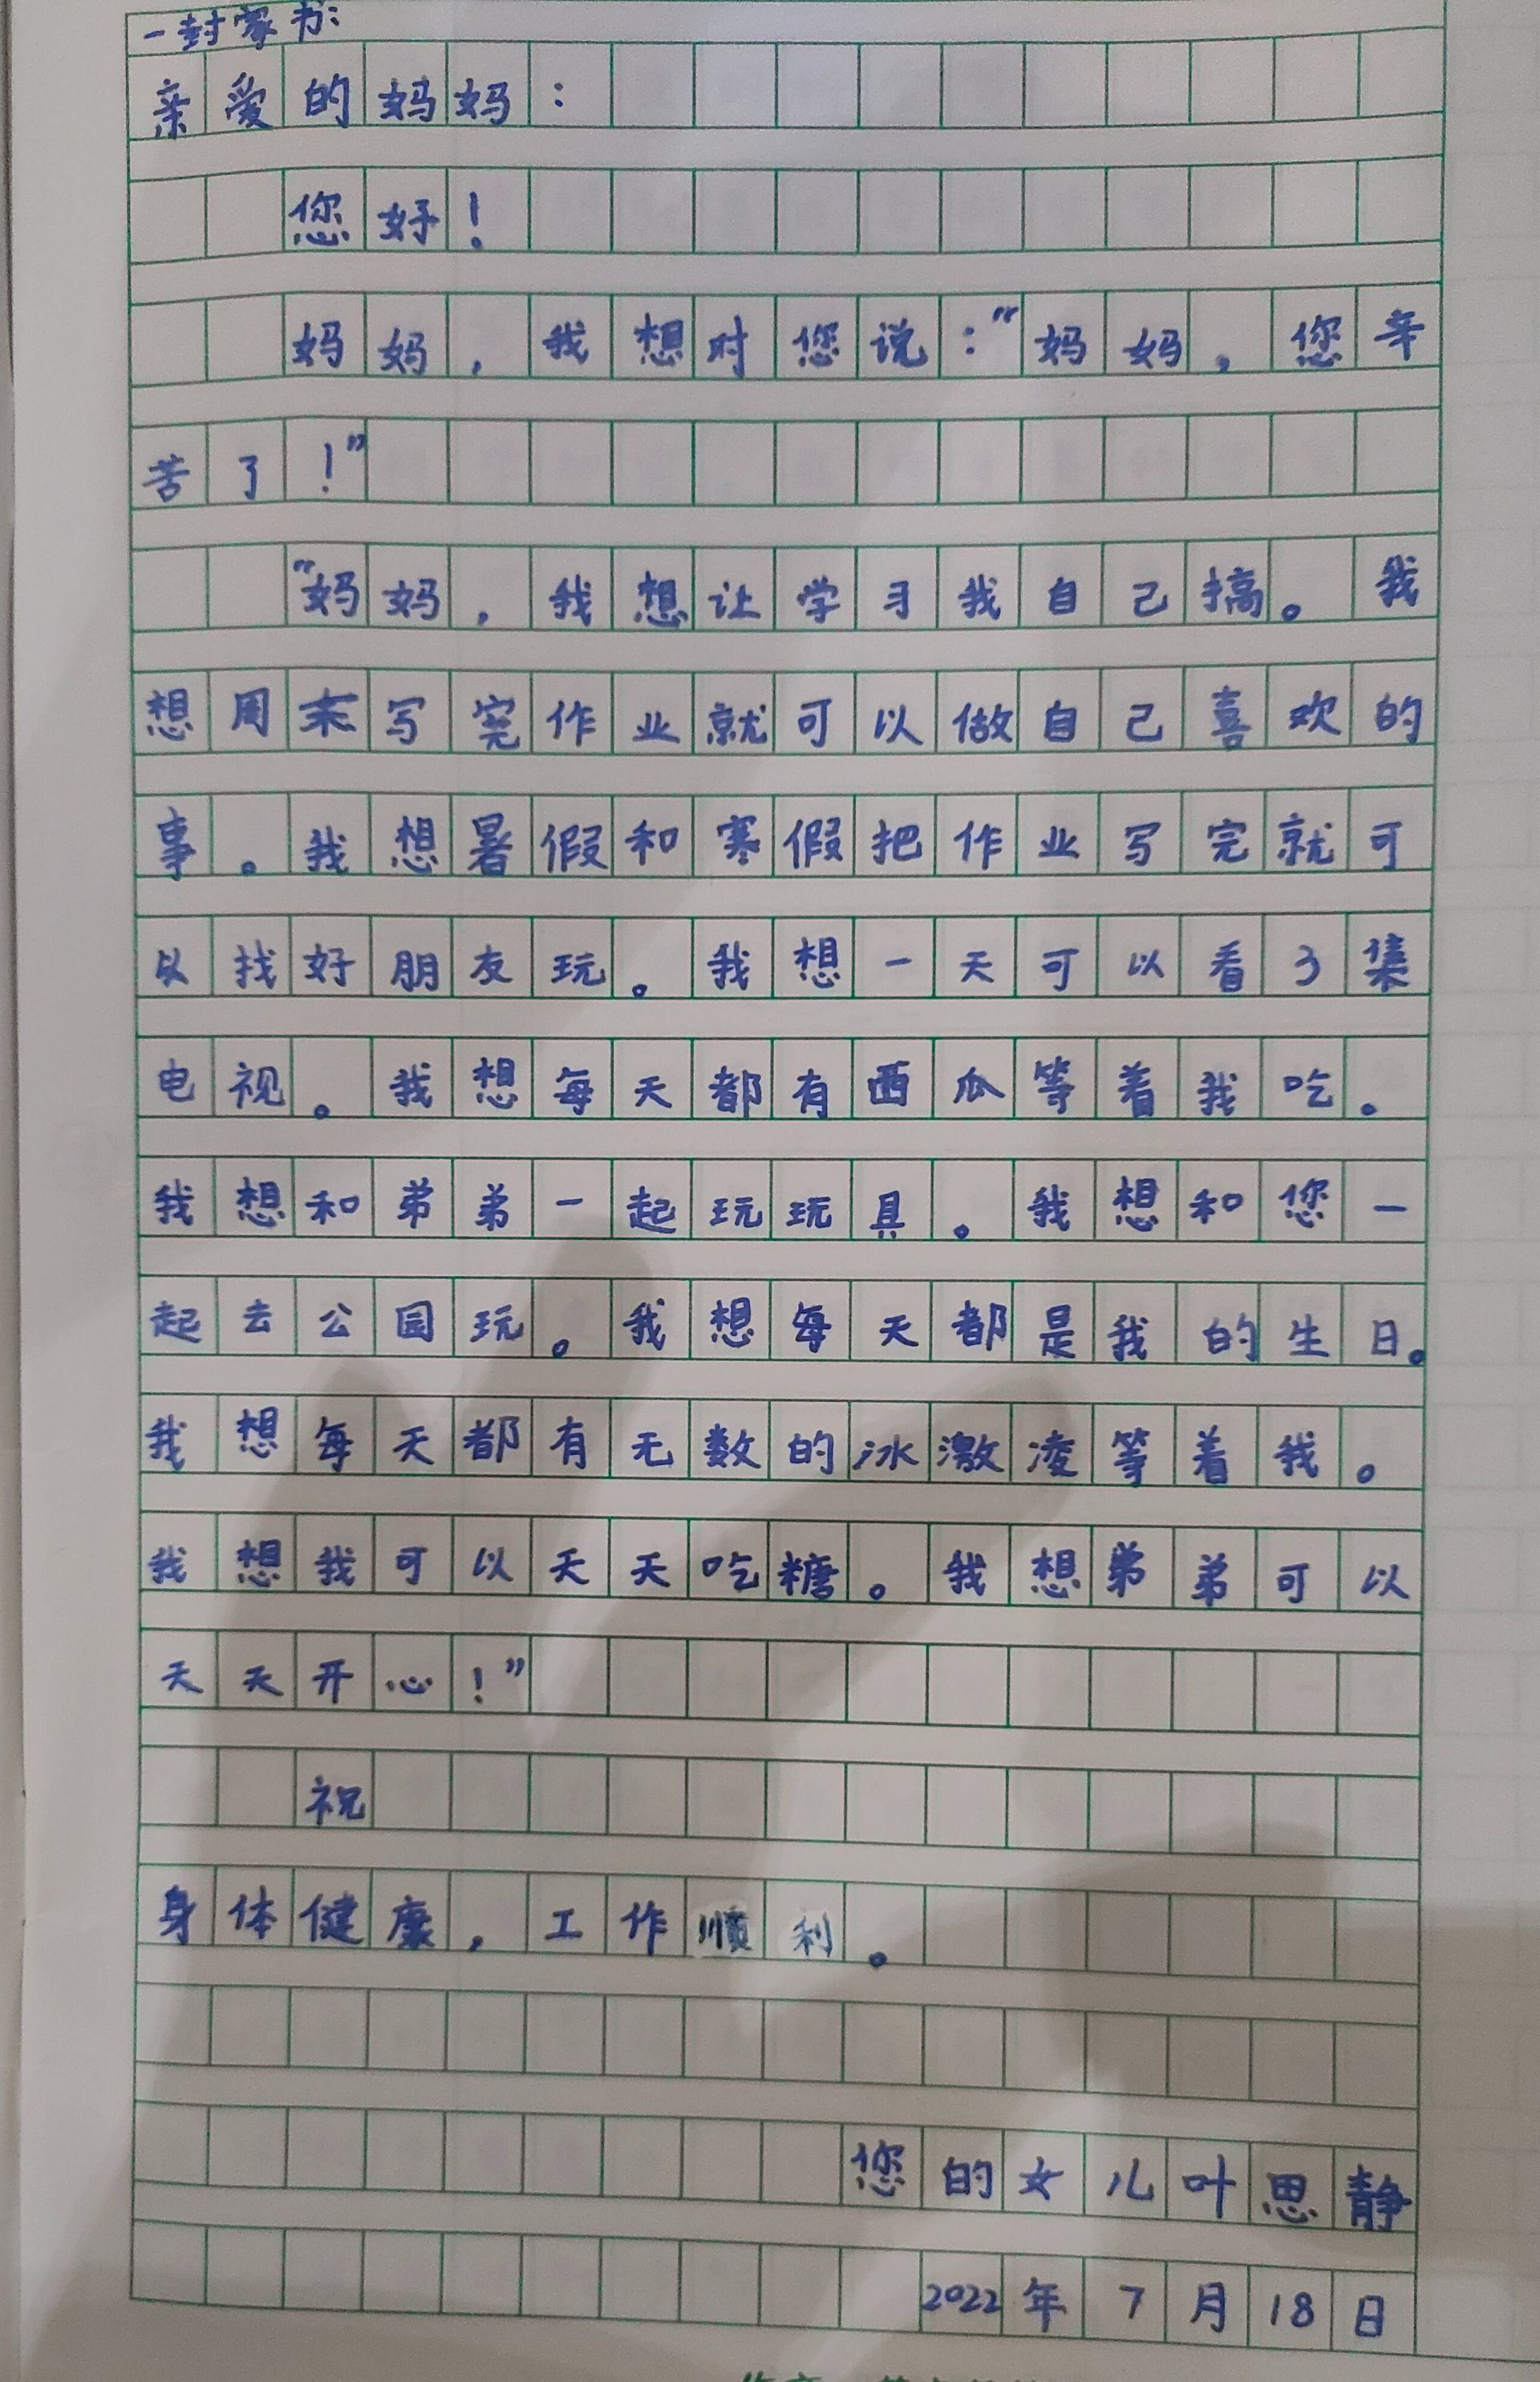 一封家书:
亲爱的妈妈：
您好！
妈妈，我想对您说：“妈妈，您辛
苦了！”
“妈妈，我想让学习我自己搞。我
想周末写完作业就可以做自己喜欢的
事。我想暑假和寒假把作业写完就可
以找好朋友玩。我想一天可以看3集
电视。我想每天都有西瓜等着我吃。
我想和弟弟一起玩玩具。我想和您一
起去公园玩。我想每天都是我的生日。
我想每天都有无数的冰激凌等着我。
我想我可以天天吃糖。我想弟弟可以
天天开心！”
祝
身体健康，工作顺利。
您的女儿叶思静
2022年7月18日